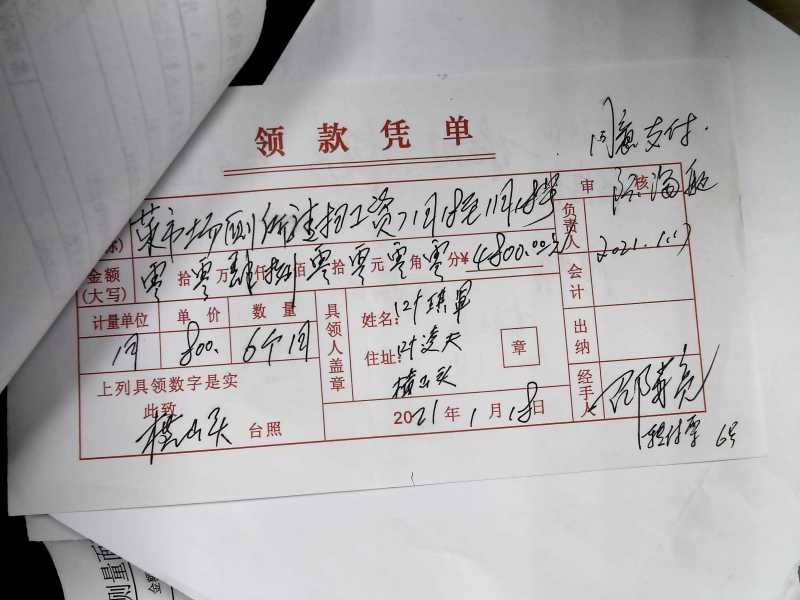 领款凭单
同意支付.
菜市场厕所清扫工资7月18至1月18号
审核
负责人 2021.1.17
金额(大写) 零拾零万肆仟捌佰零拾零元零角零分¥4800.00元
会计
计量单位 单价 数量
月 800. 6个月
具领人盖章
姓名:叶琪军
住址:叶凌夫
横山头
章
出纳
上列具领数字是实
此致
横山头 台照
2021年1月18日
经手人
6号
则量面
金额